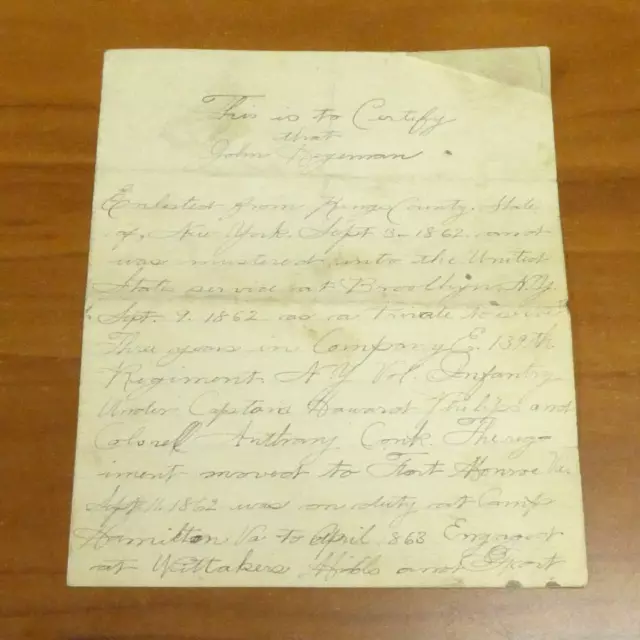 This is to Certify
that
John Rygeman
Enlisted from Kings County. State
of, New York. Sept 3. 1862 and
was mustered into the United
State service at Brooklyn N.Y.
Sept. 9. 1862 as a Private to serve
Three years in Company E. 139th
Regiment N.Y Vol. Infantry
Under Captain Howard Philips and
Colonel Anthony Conk The reg
iment moved to Fort Monroe Va.
Sept 11. 1862 was on duty at Camp
Hamilton Va to April 863 Engaged
at Wittakers Hills and